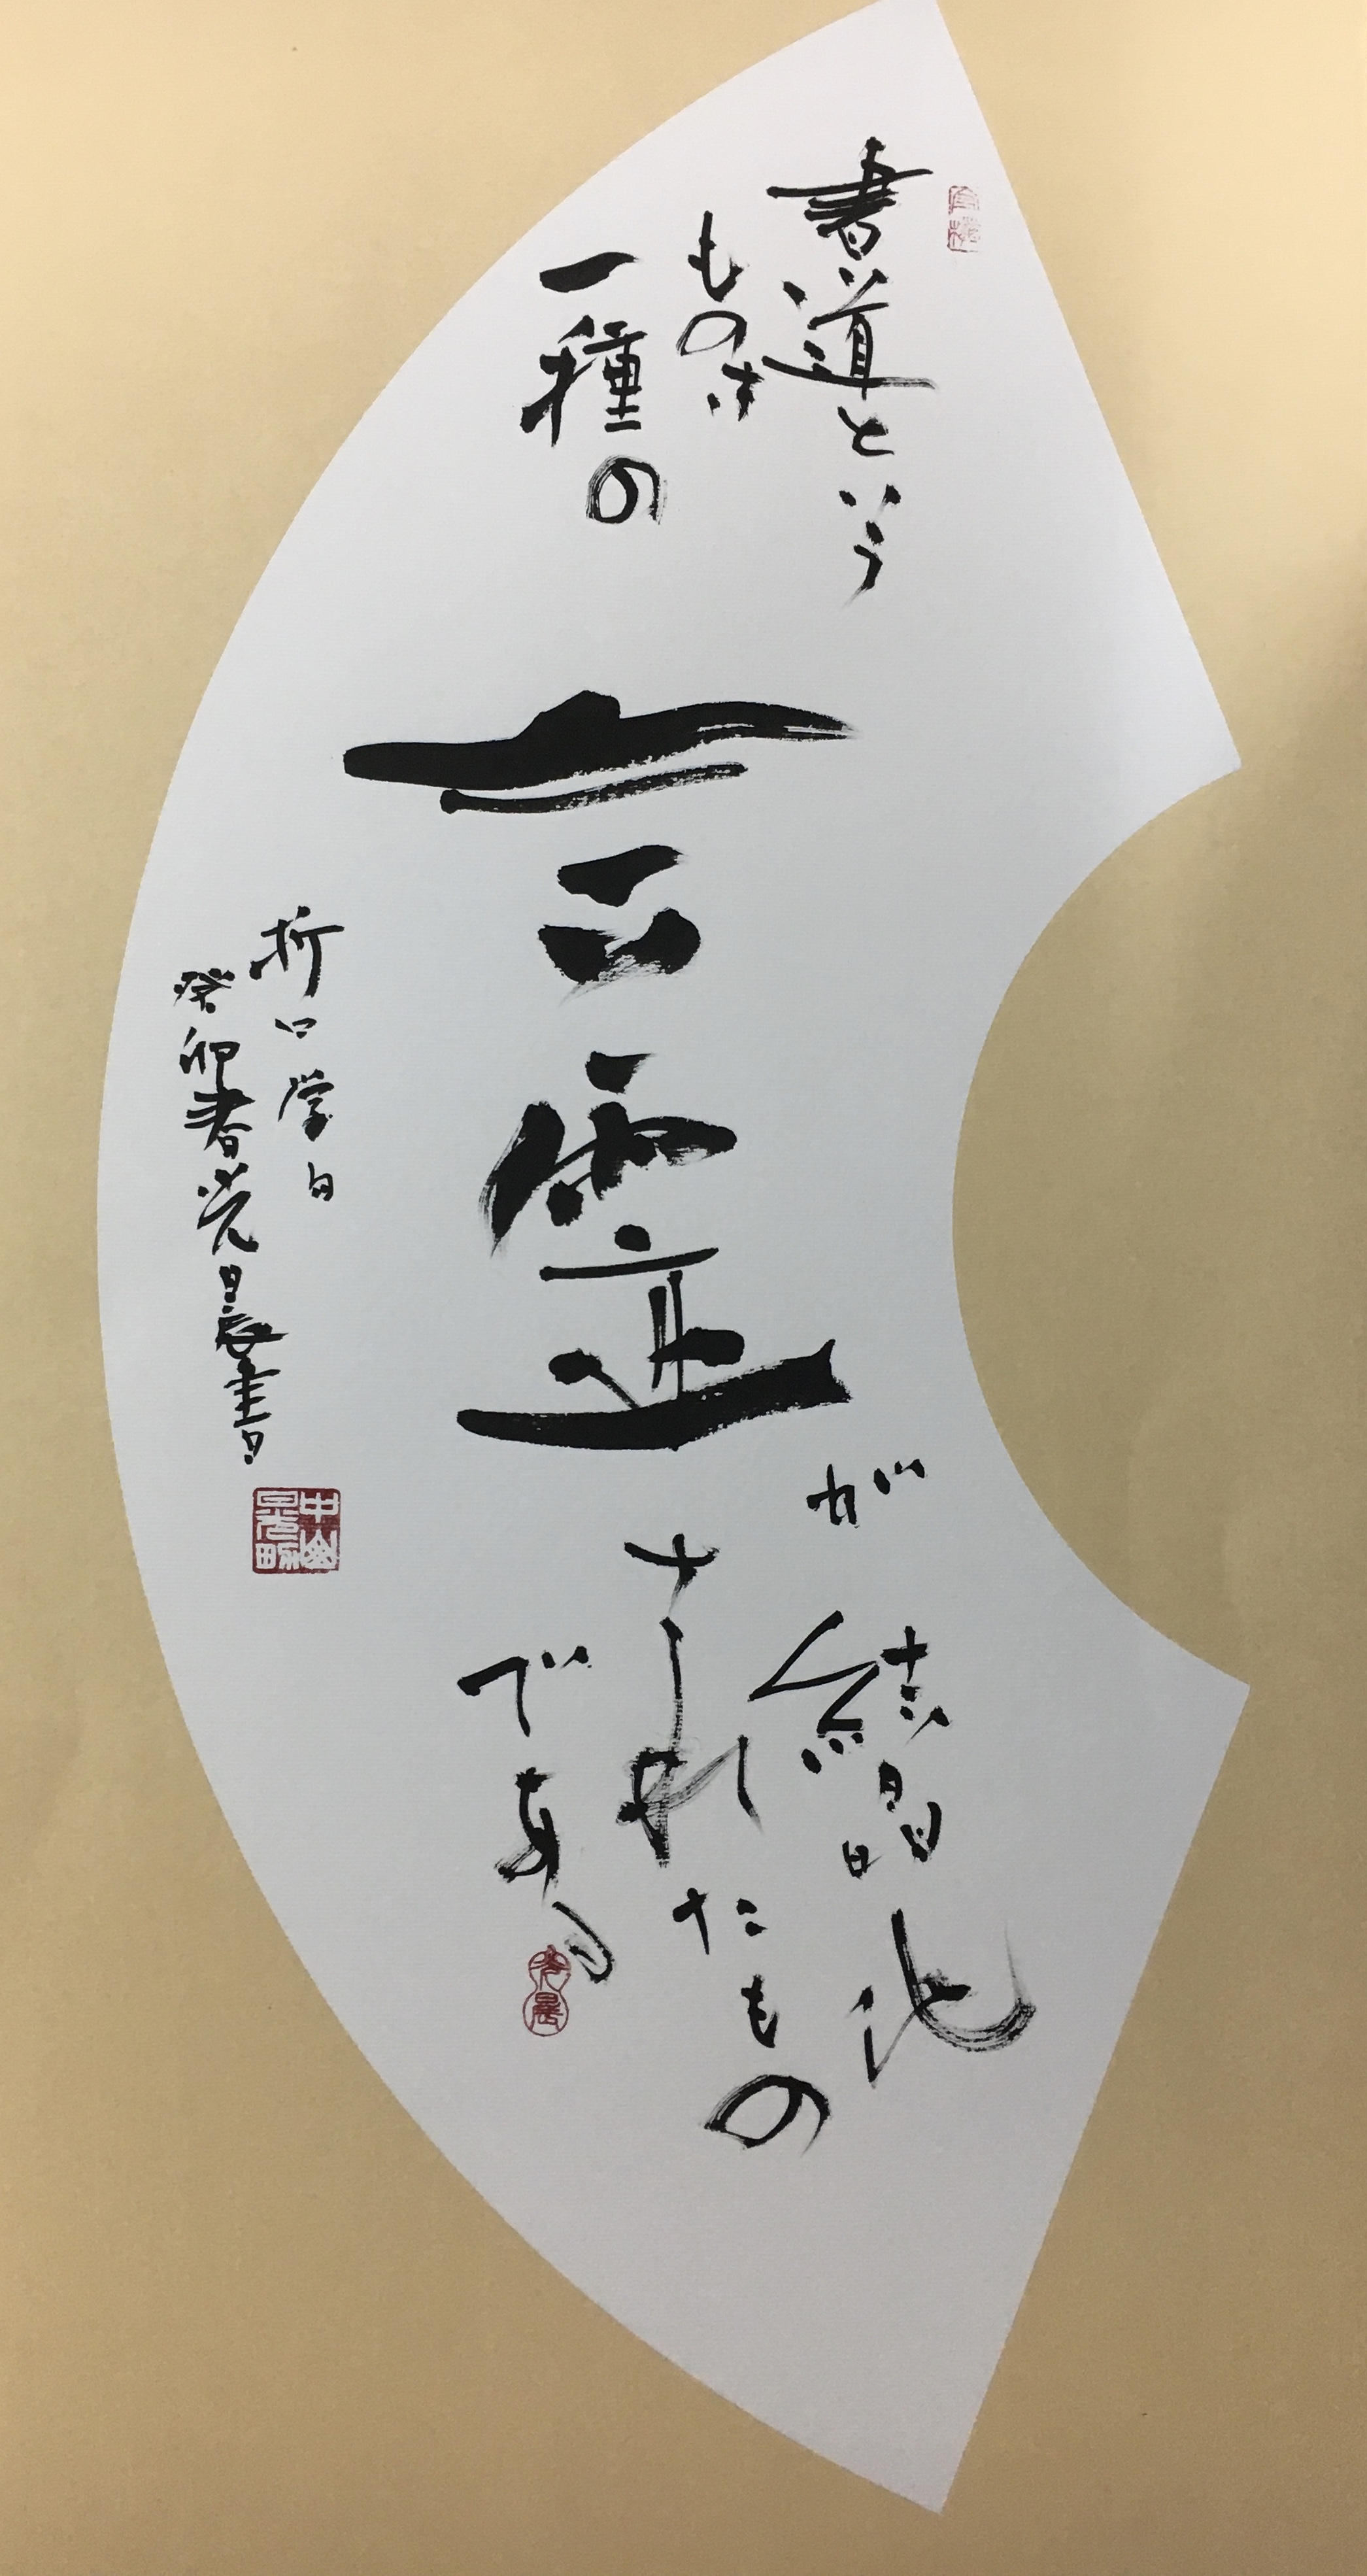 書道という
ものは
一種の
言霊
が
結晶化
されたもの
である
折口学
癸卯春光晨書
中山
光晨